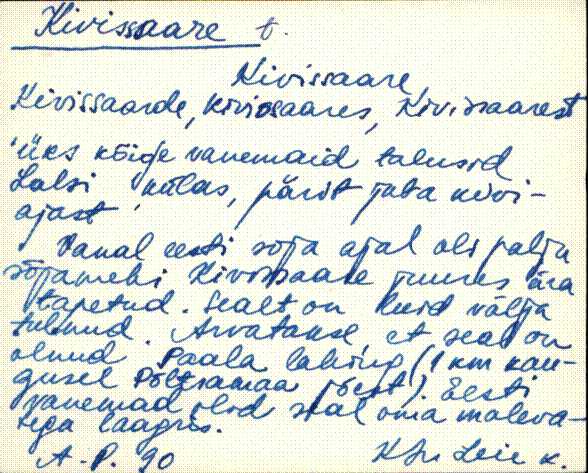 Kivissaare t.
Kivissaare
Kivissaarde, Kivissaares, Kivissaarest
'üks kõige vanemaid talusid
Lalsi 'külas, pärit juba kivi-
ajast'
Vanal eesti sõja ajal oli palju
sõjamehi Kivissaare juures ära
tapetud. Sealt on luid välja
tulnud. Arvatakse et seal on
olnud Paala lahing (1 km kau-
gusel Põltsamaa jõest). Eesti
vanemad olid seal oma maleva-
tega laagris.
A.-P. 90
KJn Leie k.